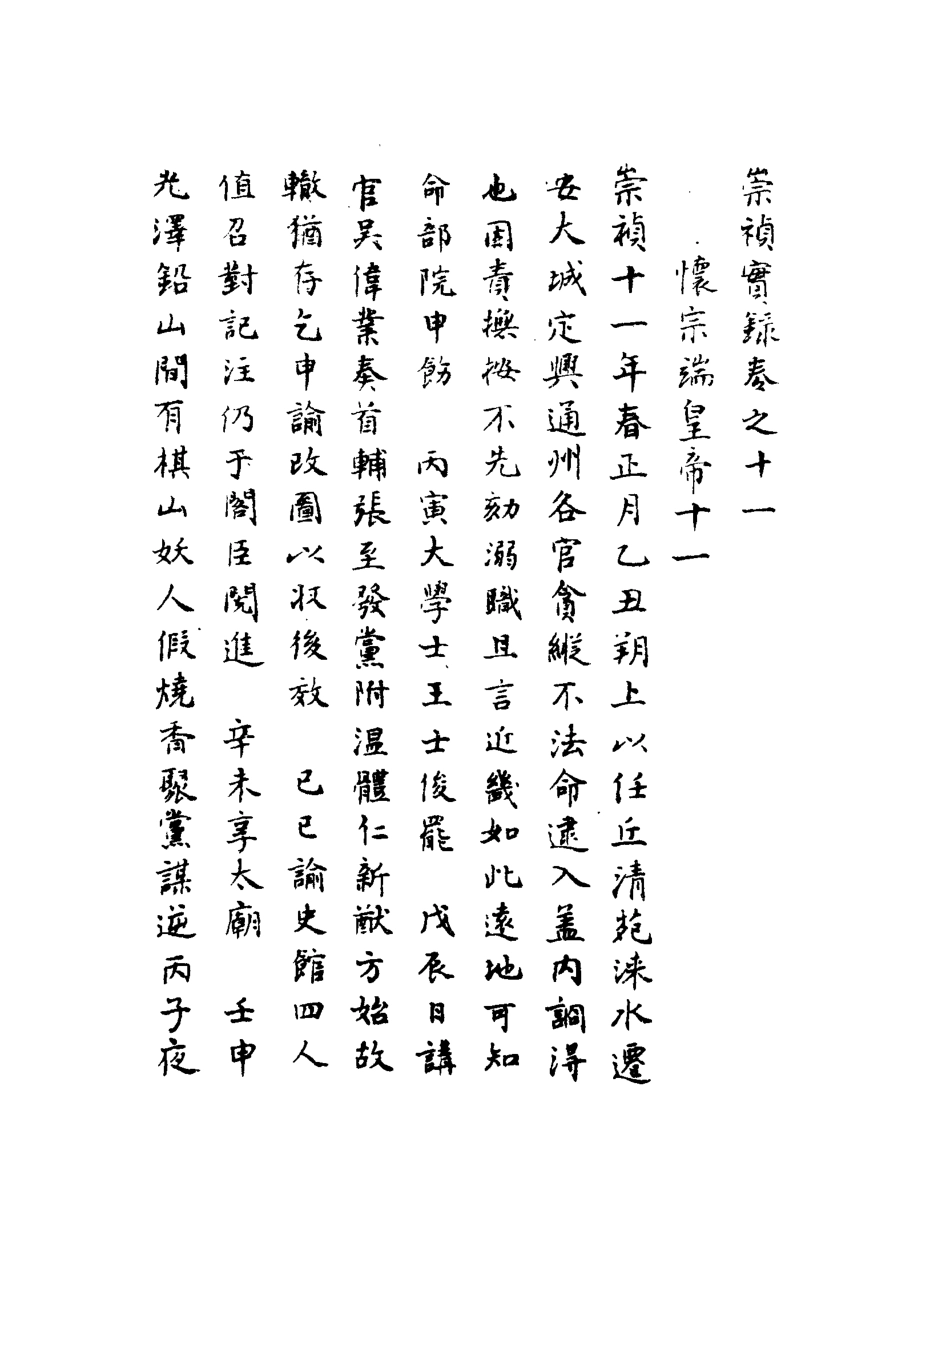 崇禎實録卷之十一
懷宗端皇帝十一
崇禎十一年春正月乙丑朔上以任丘清苑淶水遷
安大城定興通州各官貪縱不法命逮入盖内詗得
也因責撫按不先劾溺職且言近畿如此遠地可知
命部院申飭　丙寅大學士王士俊罷　戊辰日講
官吴偉業奏首輔張至發黨附温體仁新猷方始故
轍猶存乞申諭改圖以収後效　己巳諭史館四人
值召對記注仍于閣臣閱進　辛未享太廟　壬申
光澤鉛山間有棋山妖人假燒香聚黨謀逆丙子夜